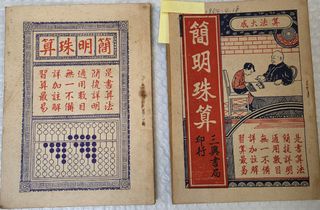 簡明珠算
是書算法
簡捷詳明
適用數目
無一不備
詳加註解
習算最易
算法大成
簡明珠算
三興書局
印行
是書算法
簡捷詳明
適用數目
無一不備
詳加註解
習算最易